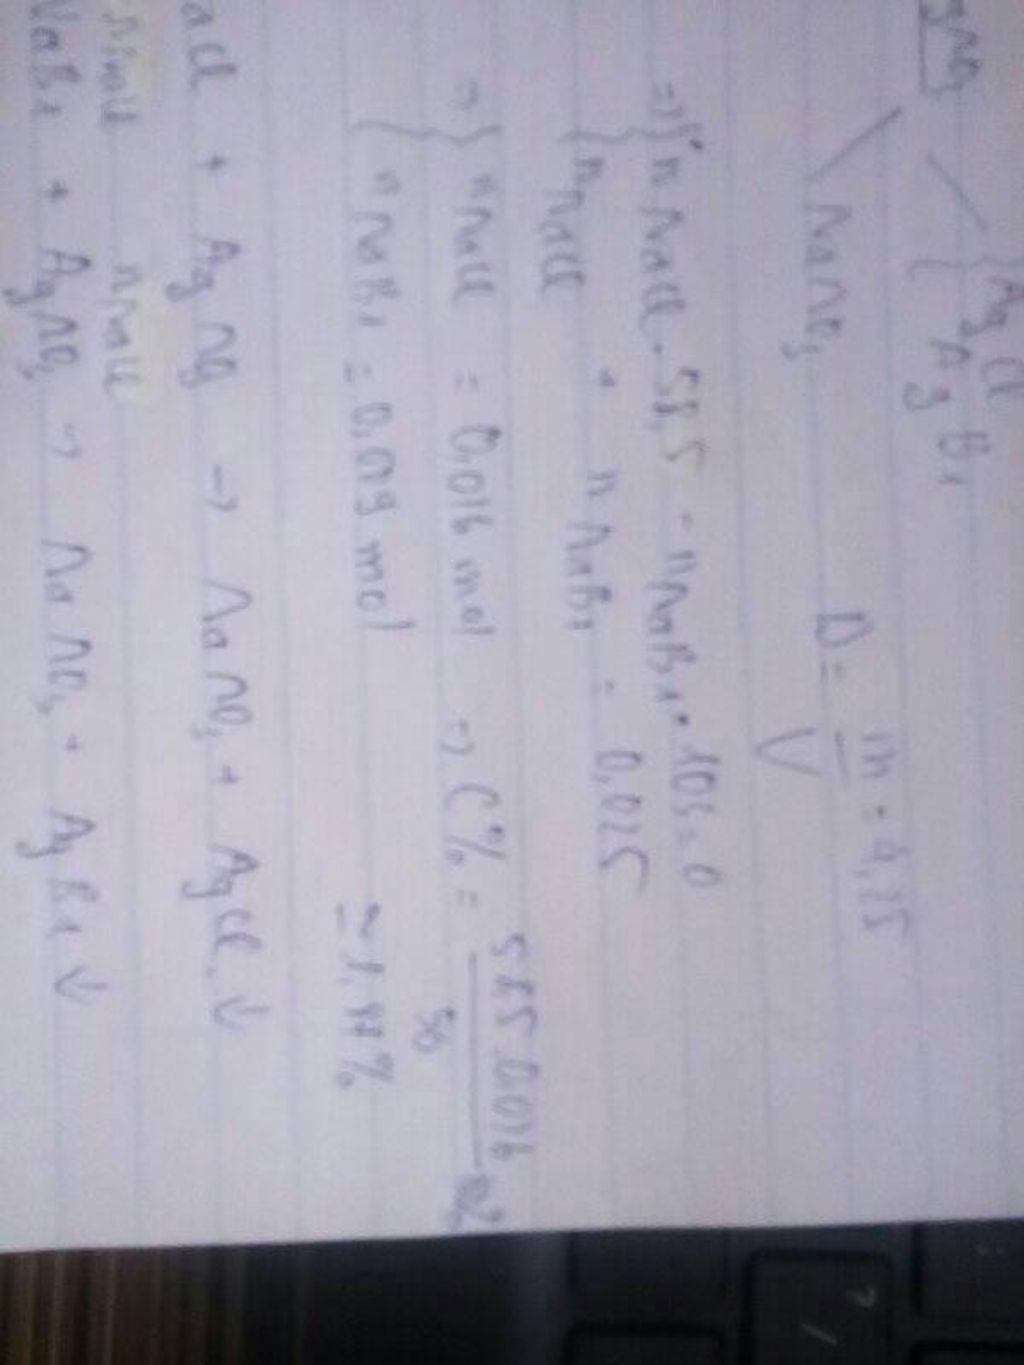 AgCl
AgBr
NaNO₃
D = m/V = 4,25
=> { n NaCl . 58,5 - n NaBr . 103 = 0
{ n NaCl + n NaBr = 0,025
-> { n NaCl = 0,016 mol -> C% = 58,5 . 0,016
{ n NaBr = 0,09 mol
50
aCl + AgNO₃ -> NaNO₃ + AgCl ↓
n NaCl n NaCl
NaBr + AgNO₃ -> NaNO₃ + AgBr ↓